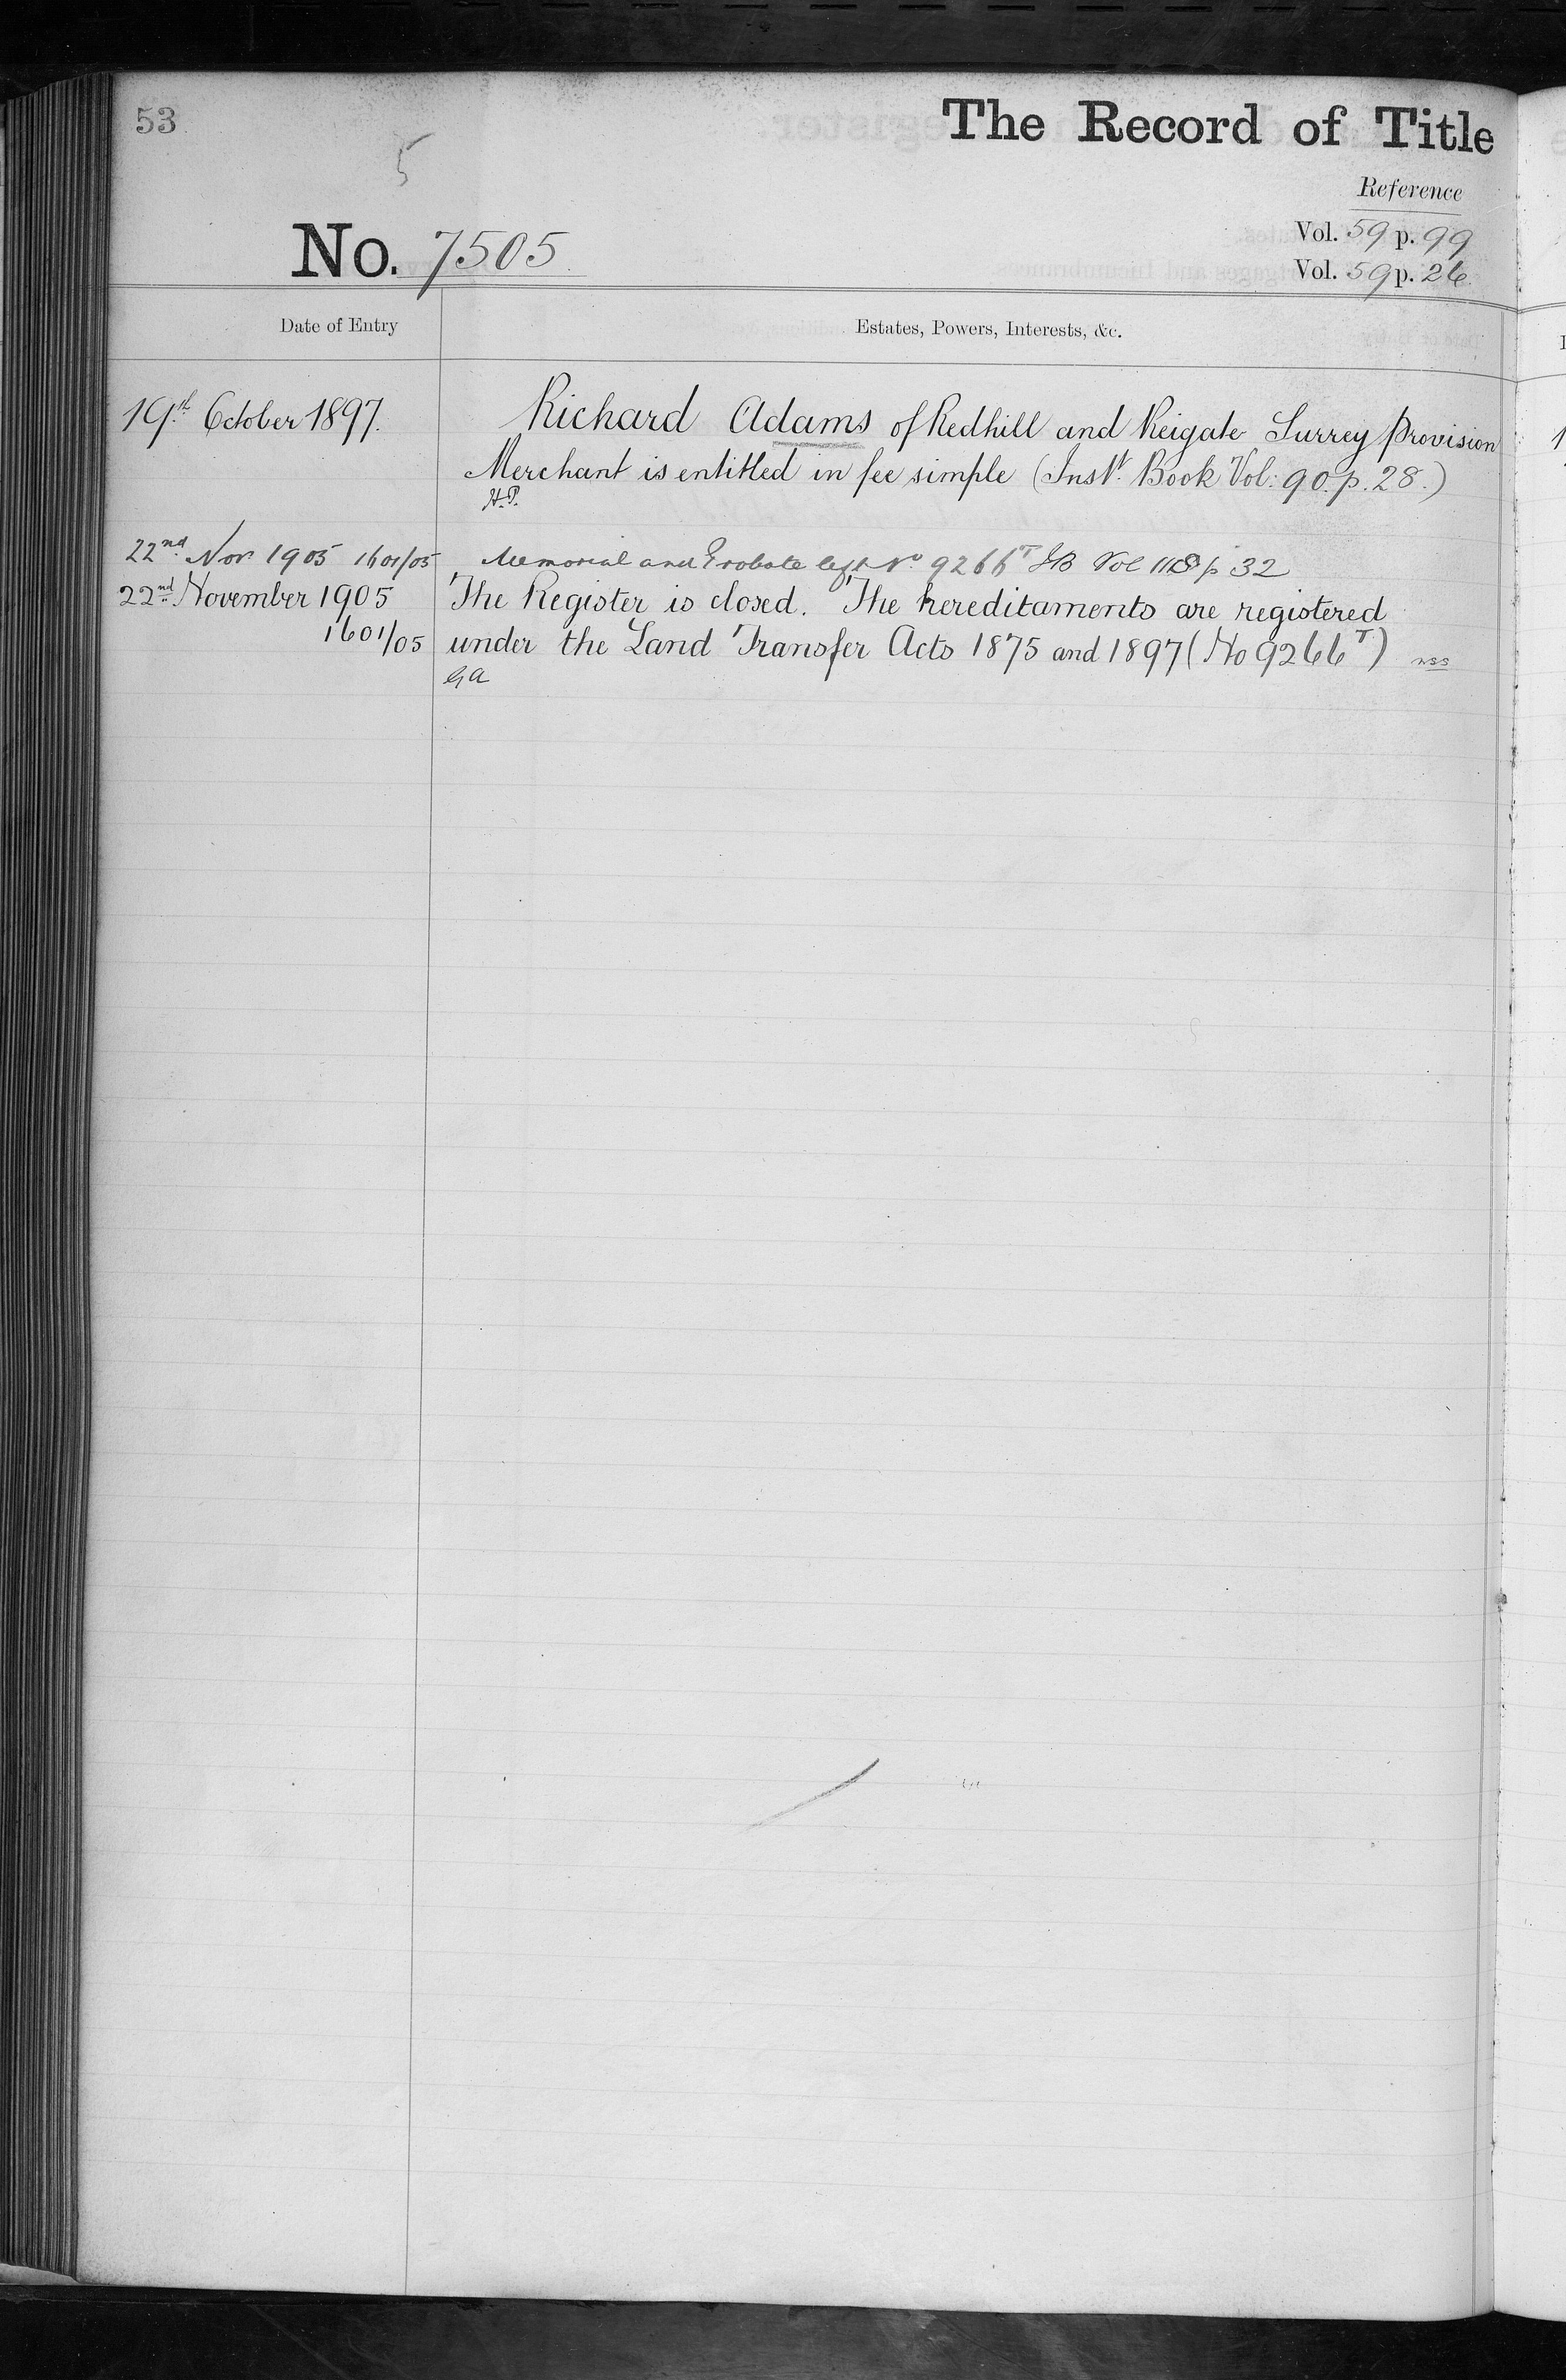 53
The Record of Title
5
Reference
Vol. 59 p. 99
No. 7505
Vol. 59 p. 26
Date of Entry
Estates, Powers, Interests, &c.
19th October 1897.
Richard Adams of Redhill and Reigate Surrey Provision
Merchant is entitled in fee simple (Inst. Book Vol: 90. p. 28.)
H.P.
22nd Nov 1905 1601/05
Memorial and Probate left No 9266T IB Vol p 32
22nd November 1905
The Register is closed. The hereditaments are registered
1601/05
under the Land Transfer Acts 1875 and 1897 (No 9266T)
GA